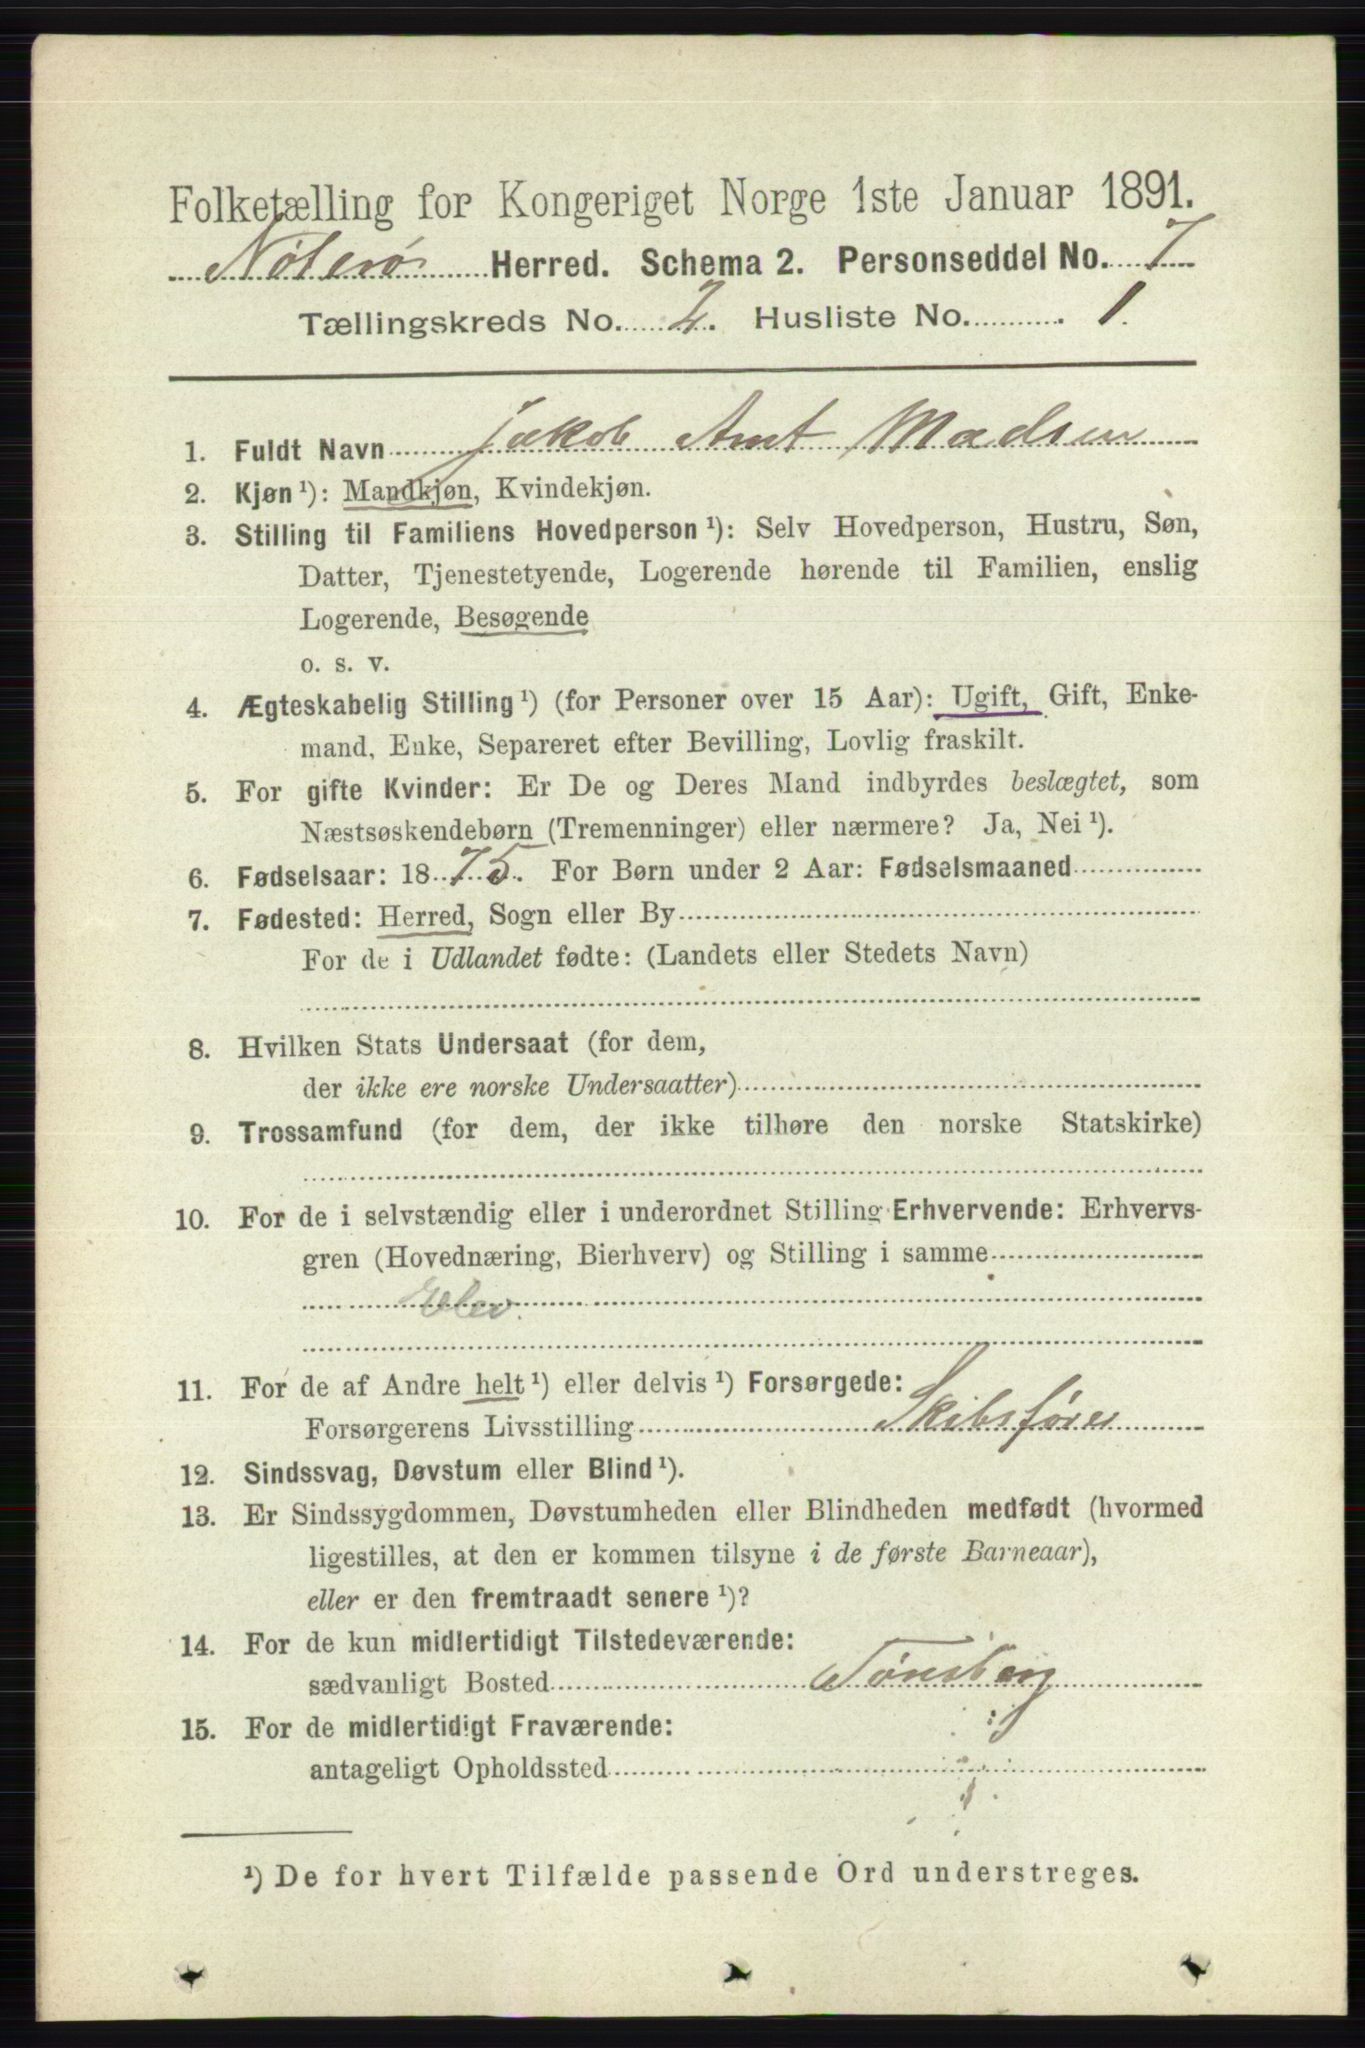 Folketælling for Kongeriget Norge 1ste Januar 1891.
Nøterø Herred. Schema 2. Personseddel No. 7
Tællingskreds No. 2. Husliste No. 1.
1. Fuldt Navn Jakob Arnt Madsen
2. Kjøn ¹): Mandkjøn, Kvindekjøn.
3. Stilling til Familiens Hovedperson ¹): Selv Hovedperson, Hustru, Søn,
Datter, Tjenestetyende, Logerende hørende til Familien, enslig
Logerende, Besøgende
o. s. v.
4. Ægteskabelig Stilling ¹) (for Personer over 15 Aar): Ugift, Gift, Enke-
mand, Enke, Separeret efter Bevilling, Lovlig fraskilt.
5. For gifte Kvinder: Er De og Deres Mand indbyrdes beslægtet, som
Næstsøskendebørn (Tremenninger) eller nærmere? Ja, Nei ¹).
6. Fødselsaar: 1875. For Børn under 2 Aar: Fødselsmaaned
7. Fødested: Herred, Sogn eller By
For de i Udlandet fødte: (Landets eller Stedets Navn)
8. Hvilken Stats Undersaat (for dem,
der ikke ere norske Undersaatter)
9. Trossamfund (for dem, der ikke tilhøre den norske Statskirke)
10. For de i selvstændig eller i underordnet Stilling Erhvervende: Erhvervs-
gren (Hovednæring, Bierhverv) og Stilling i samme
Elev.
11. For de af Andre helt ¹) eller delvis ¹) Forsørgede:
Forsørgerens Livsstilling Skibsfører
12. Sindssvag, Døvstum eller Blind ¹).
13. Er Sindssygdommen, Døvstumheden eller Blindheden medfødt (hvormed
ligestilles, at den er kommen tilsyne i de første Barneaar),
eller er den fremtraadt senere ¹)?
14. For de kun midlertidigt Tilstedeværende:
sædvanligt Bosted Tønsberg
15. For de midlertidigt Fraværende:
antageligt Opholdssted
¹) De for hvert Tilfælde passende Ord understreges.